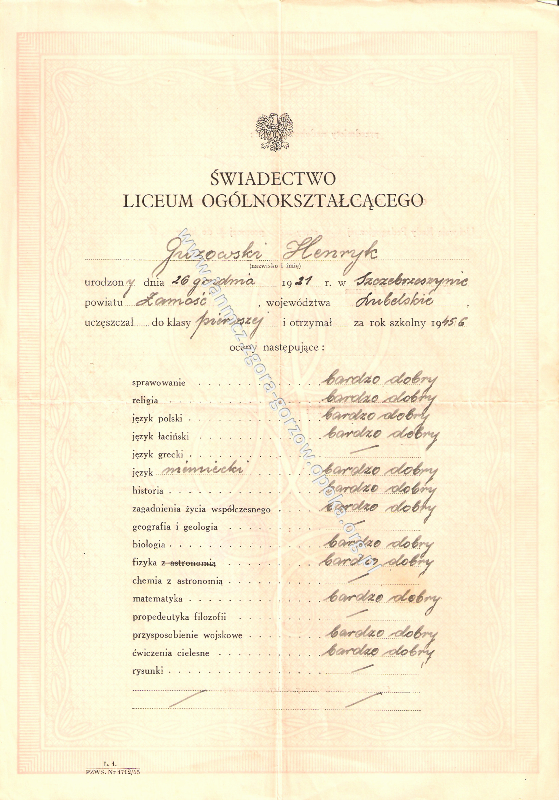 ŚWIADECTWO
LICEUM OGÓLNOKSZTAŁCĄCEGO
Guzowski Henryk
(nazwisko i imię)
urodzony dnia 26 grudnia 1921 r. w Szczebrzeszynie
powiatu Zamość, województwa Lubelskie,
uczęszczał do klasy pierwszej i otrzymał za rok szkolny 1945/6
oceny następujące:
sprawowanie bardzo dobry
religia bardzo dobry
język polski bardzo dobry
język łaciński bardzo dobry
język grecki —
język niemiecki bardzo dobry
historia bardzo dobry
zagadnienia życia współczesnego bardzo dobry
geografia i geologia —
biologia bardzo dobry
fizyka z astronomią bardzo dobry
chemia z astronomią —
matematyka bardzo dobry
propedeutyka filozofii —
przysposobienie wojskowe bardzo dobry
ćwiczenia cielesne bardzo dobry
rysunki —
Ł. 4.
PZWS. Nr 1712/55